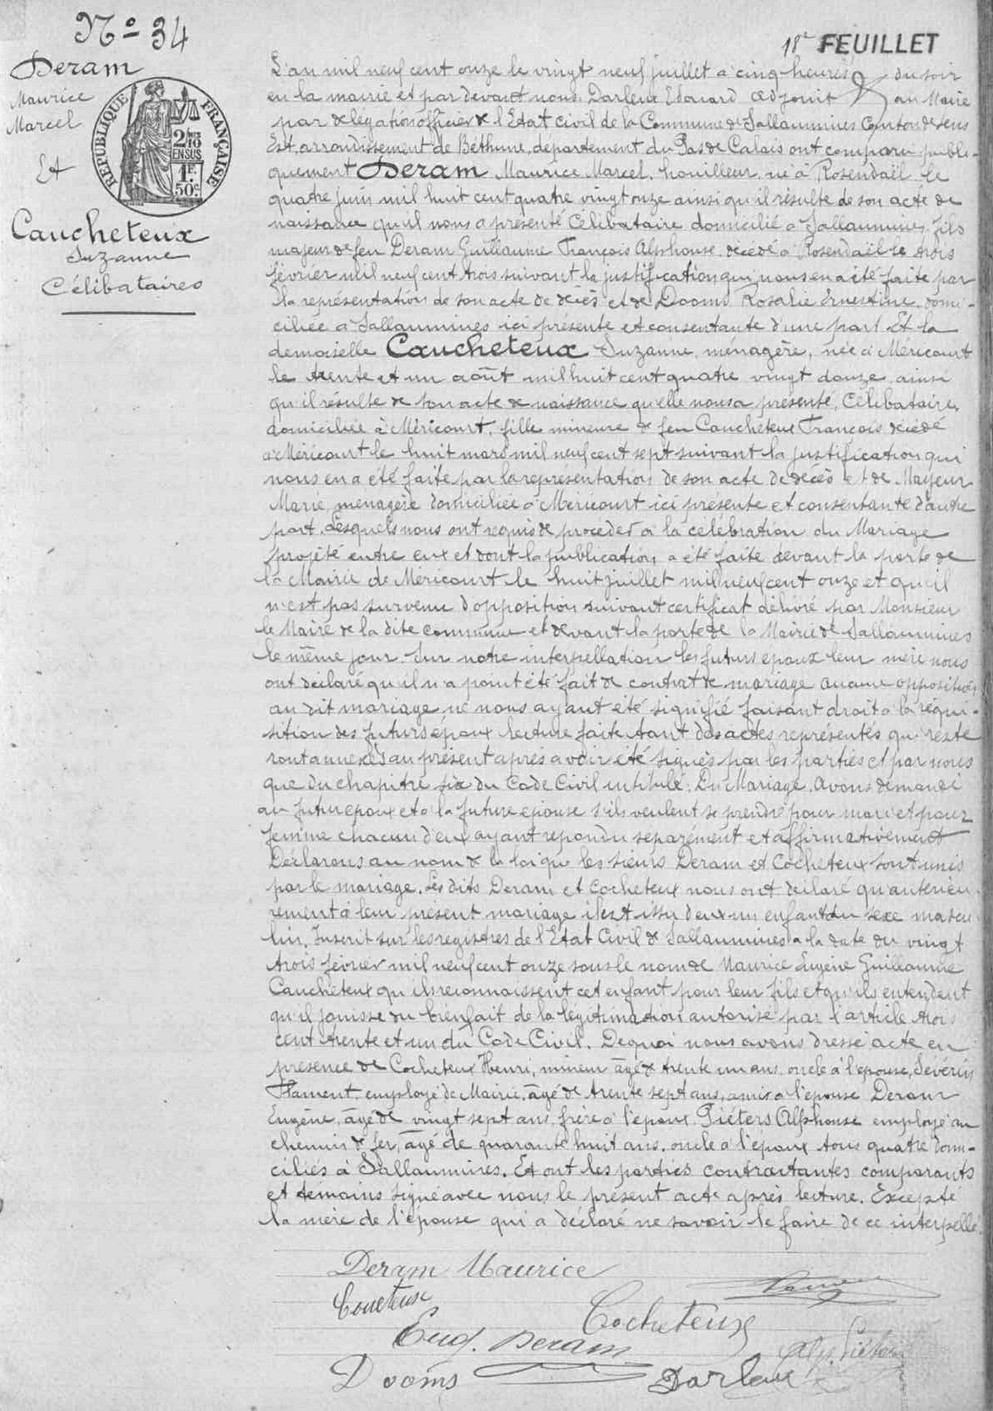 Nº 34
18e FEUILLET
Deram
Maurice
Marcel
Et
RÉPUBLIQUE FRANÇAISE
2/10
EN SUS
1F
50c
Caucheteux
Suzanne
Célibataires
L'an mil neuf cent onze le vingt neuf juillet à cinq heures du soir
en la mairie et par devant nous Darleux Edouard adjoint au Maire
par délégation officier de l'Etat civil de la Commune de Sallaumines Canton de Lens
Est, arrondissement de Béthune, département du Pas de Calais ont comparu publi-
quement Deram Maurice Marcel, houilleur, né à Rosendaël le
quatre juin mil huit cent quatre vingt onze ainsi qu'il résulte de son acte de
naissance qu'il nous a présenté Célibataire domicilié à Sallaumines fils
majeur de feu Deram Guillaume François Alphonse, décédé à Rosendaël le trois
février mil neuf cent trois suivant la justification qui nous en a été faite par
la représentation de son acte de décès et de Dooms Rosalie Ernestine domi-
ciliée à Sallaumines ici présente et consentante d'une part Et la
demoiselle Caucheteux Suzanne, ménagère, née à Méricourt
le trente et un août mil huit cent quatre vingt douze ainsi
qu'il résulte de son acte de naissance qu'elle nous a présenté, Célibataire,
domiciliée à Méricourt, fille mineure de feu Caucheteux François décédé
à Méricourt le huit mars mil neuf cent sept suivant la justification qui
nous en a été faite par la représentation de son acte de décès et de Mayeur
Marie, ménagère domiciliée à Méricourt ici présente et consentante d'autre
part. Lesquels nous ont requis de procéder à la célébration du Mariage
projeté entre eux et dont la publication a été faite devant la porte de
la Mairie de Méricourt le huit juillet mil neuf cent onze et qu'il
n'est pas survenu d'opposition suivant certificat délivré par Monsieur
le Maire de la dite commune et devant la porte de la Mairie de Sallaumines
le même jour. Sur notre interpellation les futurs époux leur mère nous
ont déclaré qu'il n'a point été fait de contrat de mariage aucune opposition
au dit mariage ne nous ayant été signifié faisant droit à la réqui-
sition des futurs époux lecture faite tant des actes représentés qui reste
ront annexés au présent après avoir été signés par les parties et par nous
que du chapitre six du Code Civil intitulé: Du Mariage. Avons demandé
au futur époux et à la future épouse s'ils veulent se prendre pour mari et pour
femme chacun d'eux ayant répondu séparément et affirmativement
Déclarons au nom de la loi que les sieurs Deram et Cocheteux sont unis
par le mariage. Les dits Deram et Cocheteux nous ont déclaré qu'antérieu
rement à leur présent mariage il est issu d'eux un enfant du sexe mascu
lin. Inscrit sur les registres de l'Etat Civil de Sallaumines à la date du vingt
trois février mil neuf cent onze sous le nom de Maurice Eugène Guillaume
Caucheteux qu'ils reconnaissent cet enfant pour leur fils et qu'ils entendent
qu'il jouisse du bienfait de la légitimation autorisé par l'article trois
cent trente et un du Code Civil. De quoi nous avons dressé acte en
présence de Cocheteux Henri, mineur âgé de trente un ans oncle à l'épouse, Séverin
Flament employé de Mairie, âgé de trente sept ans, amis à l'épouse Deram
Eugène, âgé de vingt sept ans frère à l'époux Piéters Alphonse employé au
chemin de fer, âgé de quarante huit ans. oncle à l'époux tous quatre domi-
ciliés à Sallaumines. Et ont les parties contractantes comparants
et témoins signé avec nous le présent acte après lecture. Excepté
la mère de l'épouse qui a déclaré ne savoir le faire de ce interpellé
Deram Maurice
Cocheteux
Eug. Deram
Dooms
Darleux